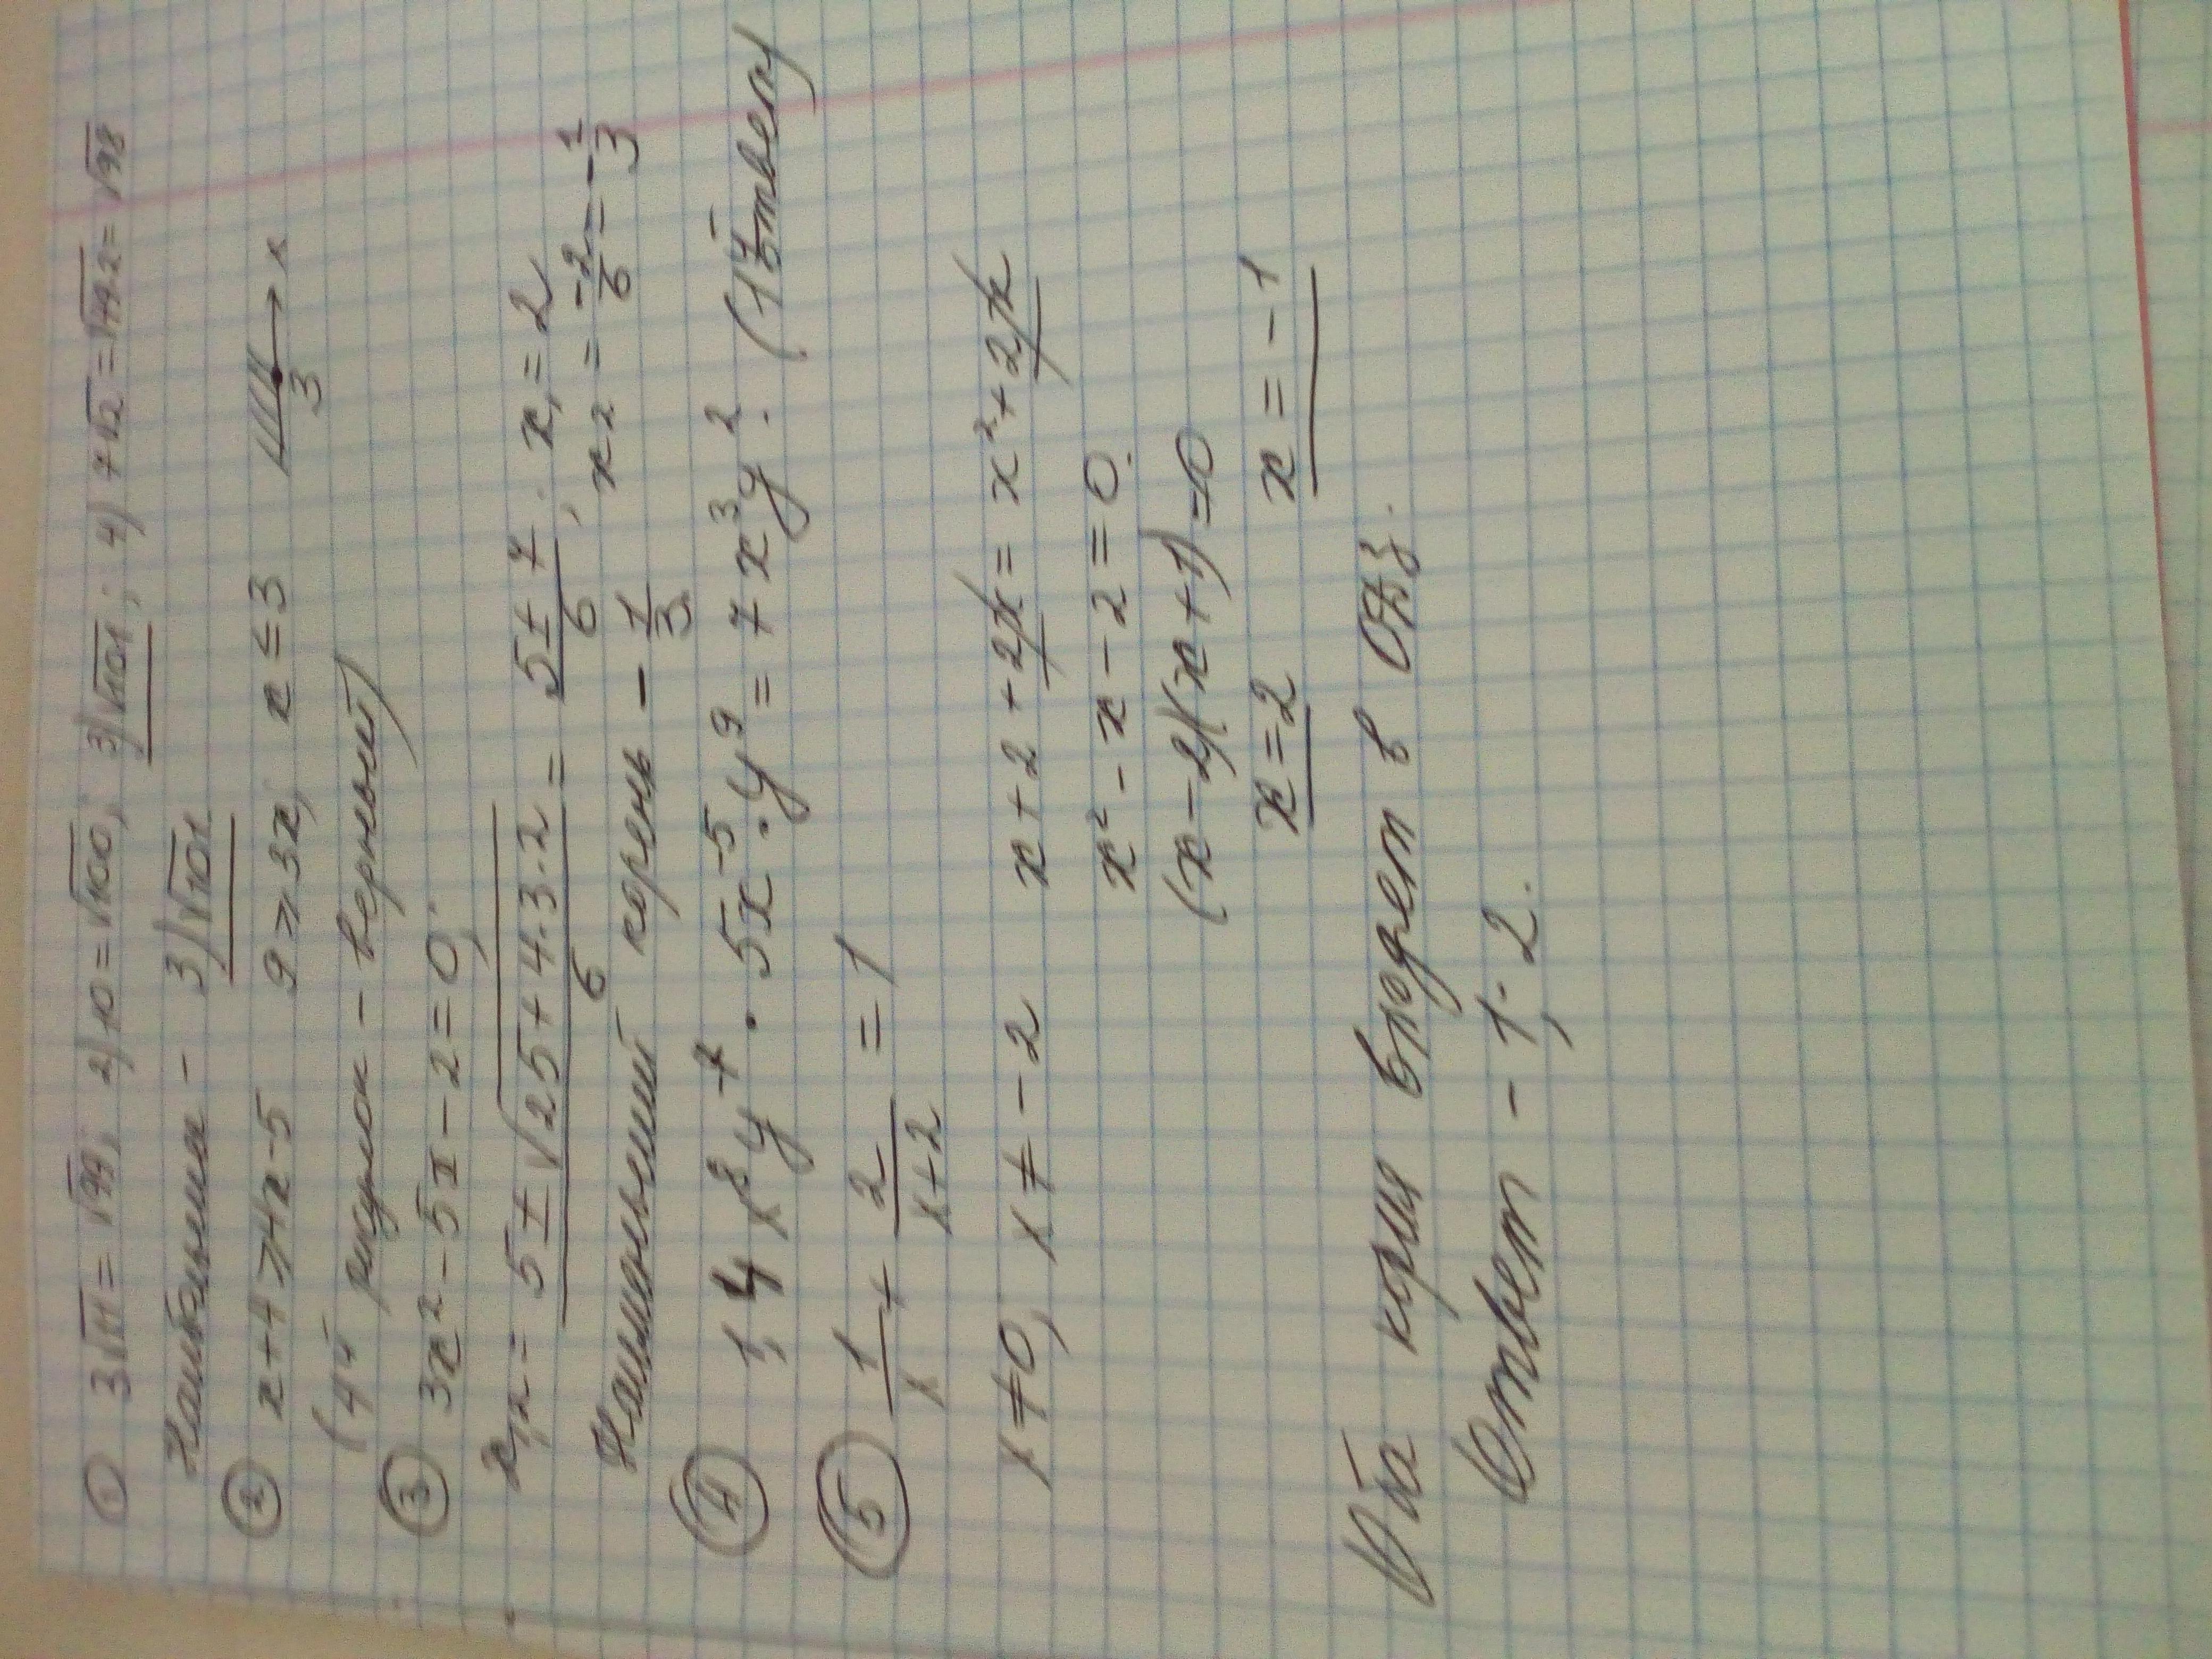 ① 3√11 = √99; 2) 10 = √100; 3) √101; 4) 7√2 = √49·2 = √98
Наибольшая - 3) √101
② x+4 ≥ 4x-5 9 ≥ 3x; x ≤ 3 3 x
(4й рисунок - верный)
③ 3x² - 5x - 2 = 0;
x₁,₂ = 5 ± √25+4·3·2 / 6 = 5±7 / 6; x₁ = 2
x₂ = -2/6 = -1/3
Наименьший корень - 1/3.
④ 1,4 x⁸ y⁻⁷ · 5x⁻⁵ · y⁹ = 7x³y². (1й ответ)
⑤ 1/x + 2/x+2 = 1
x ≠ 0; x ≠ -2 x+2+2x = x²+2x
x² - x - 2 = 0.
(x-2)(x+1) = 0
x = 2 x = -1
Оба корня входят в ОДЗ.
Ответ - 1; 2.